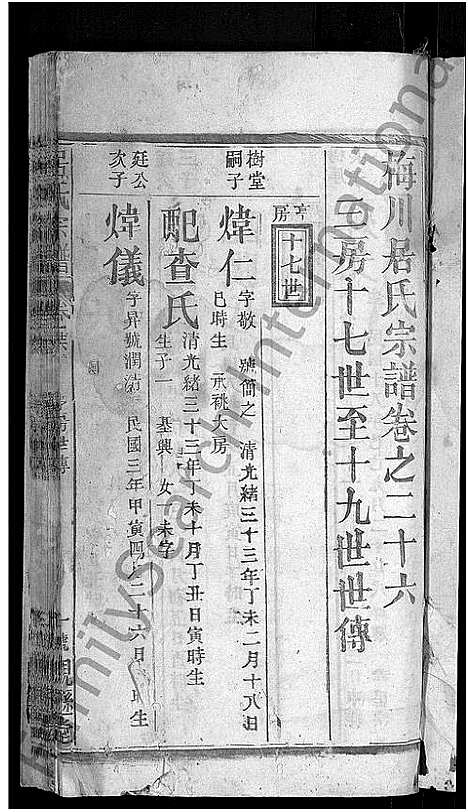 梅川居氏宗譜卷之二十六
三房十七世至十九世世傳
亨房
十七世
樹堂嗣子
煒仁
字敬 號簡之 清光緒三十三年丁未二月十八日
巳時生 承祧大房
配查氏
清光緒三十三年丁未十月丁丑日寅時生
生子一 基興 女一未字
廷公次子
煒儀
字昇 號潤清 民國三年甲寅四月二十六日 時生
氏宗譜
FamilySearch International